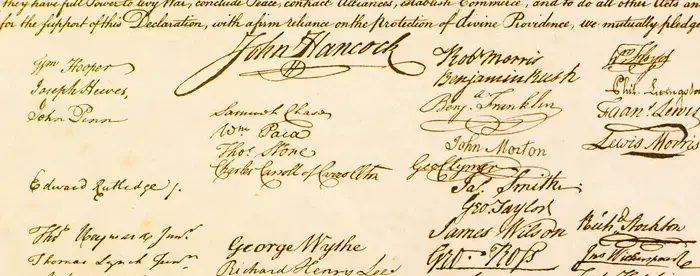 they have full Power to levy War, conclude Peace, contract Alliances, establish Commerce, and to do all other Acts and
for the support of this Declaration, with a firm reliance on the Protection of divine Providence, we mutually pledge
John Hancock
Wm Hooper
Joseph Hewes,
John Penn
Edward Rutledge /.
Thos Heyward Junr.
Thomas Lynch Junr.
Samuel Chase
Wm. Paca
Thos. Stone
Charles Carroll of Carrollton
George Wythe
Richard Henry Lee
Robt Morris
Benjamin Rush
Benja. Franklin
John Morton
Geo Clymer
Jas. Smith.
Geo. Taylor
James Wilson
Geo. Ross
Wm Floyd
Phil. Livingston
Frans. Lewis
Lewis Morris
Richd. Stockton
Jno Witherspoon